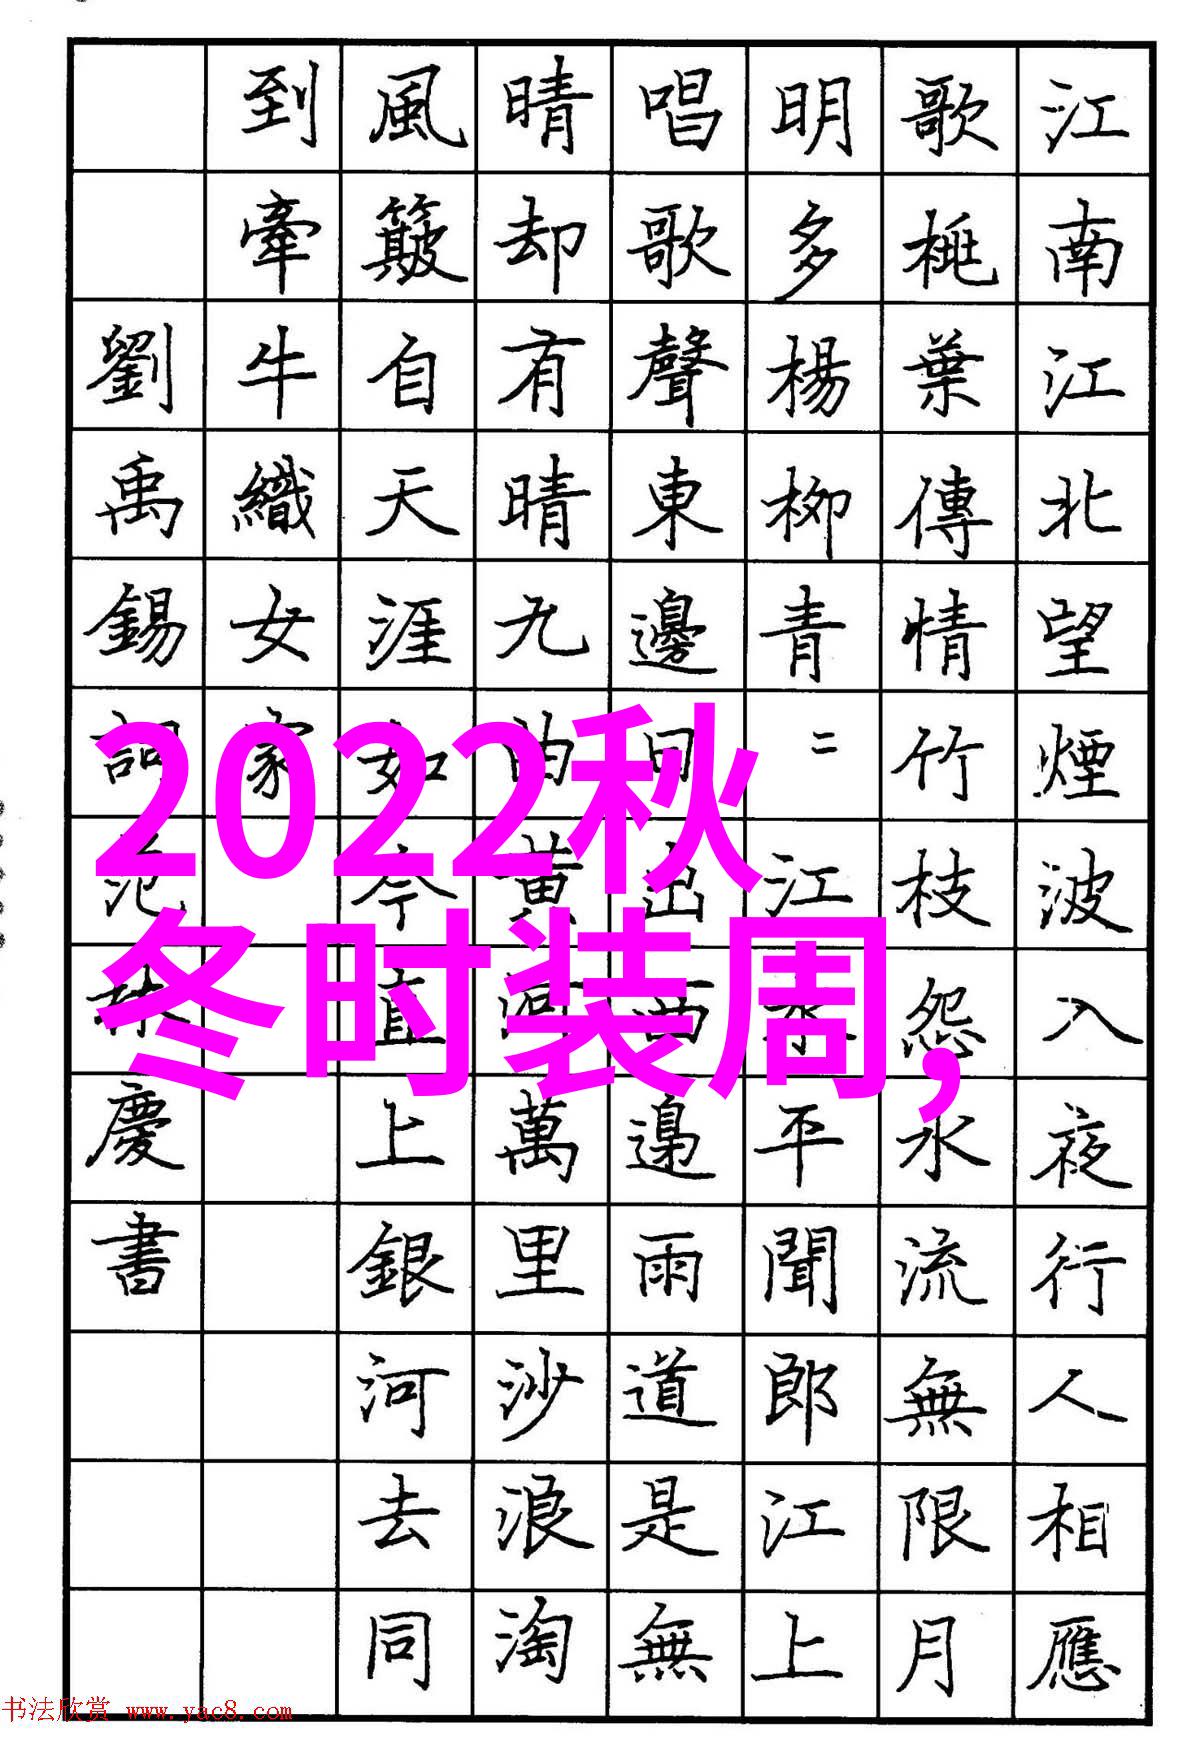 江南江北望煙波入夜行人相應
歌桃葉傳情竹枝怨水流無限月
明多楊柳青〻江水平聞郎江上
唱歌聲東邊日出西邊雨道是無
晴却有晴九曲黃河萬里沙浪淘
風簸自天涯如今直上銀河去同
到牽牛織女家
劉禹錫詞范林慶書
2022秋
冬时装周,
书法欣赏 www.yac8.com